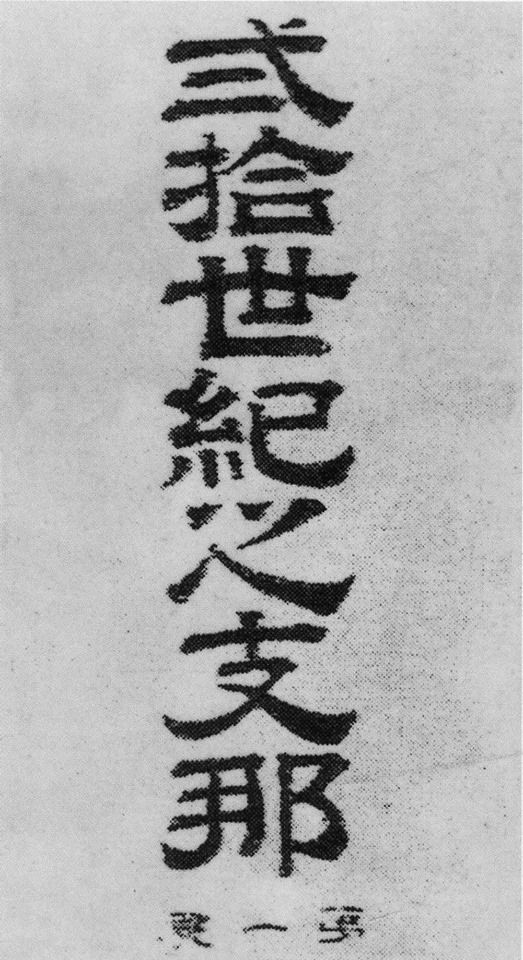 弐拾世紀之支那
第一號